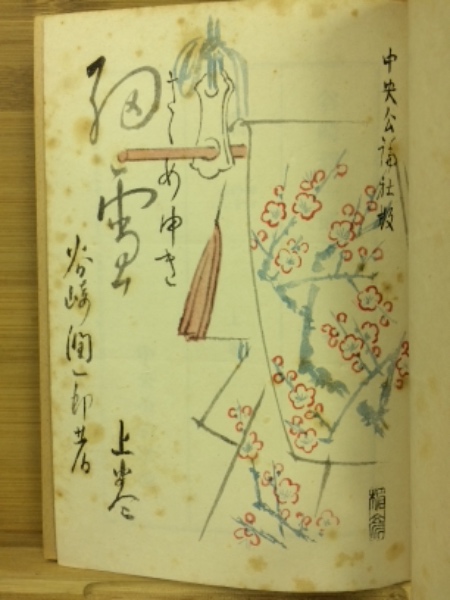 中央公論社版
さゝめゆき
細雪
谷崎潤一郎著
上巻